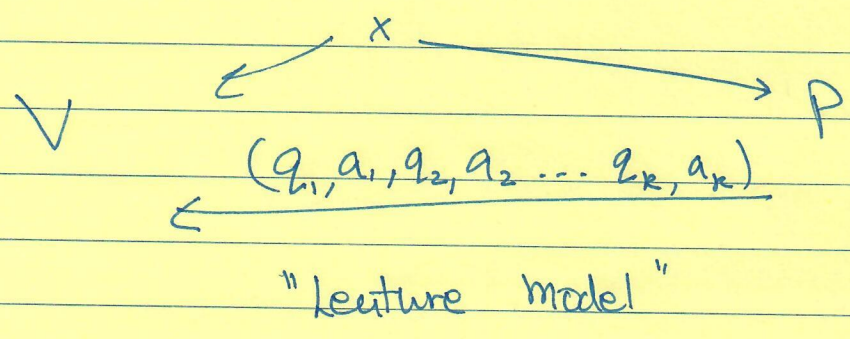 x
V P
(q₁, a₁, q₂, a₂ ... qₖ, aₖ)
"Lecture model"